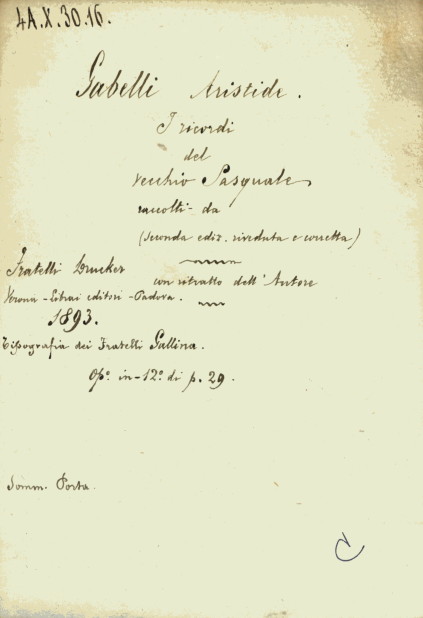 4A.X.30.16.
Gabelli Aristide.
I ricordi
del
vecchio Pasquale
raccolti da
(seconda ediz. riveduta e corretta)
con ritratto dell'Autore
Fratelli Drucker
Verona - Librai editori - Padova.
1893.
Tipografia dei Fratelli Gallina.
Opº. in-12º di p. 29.
Somm. Porta.